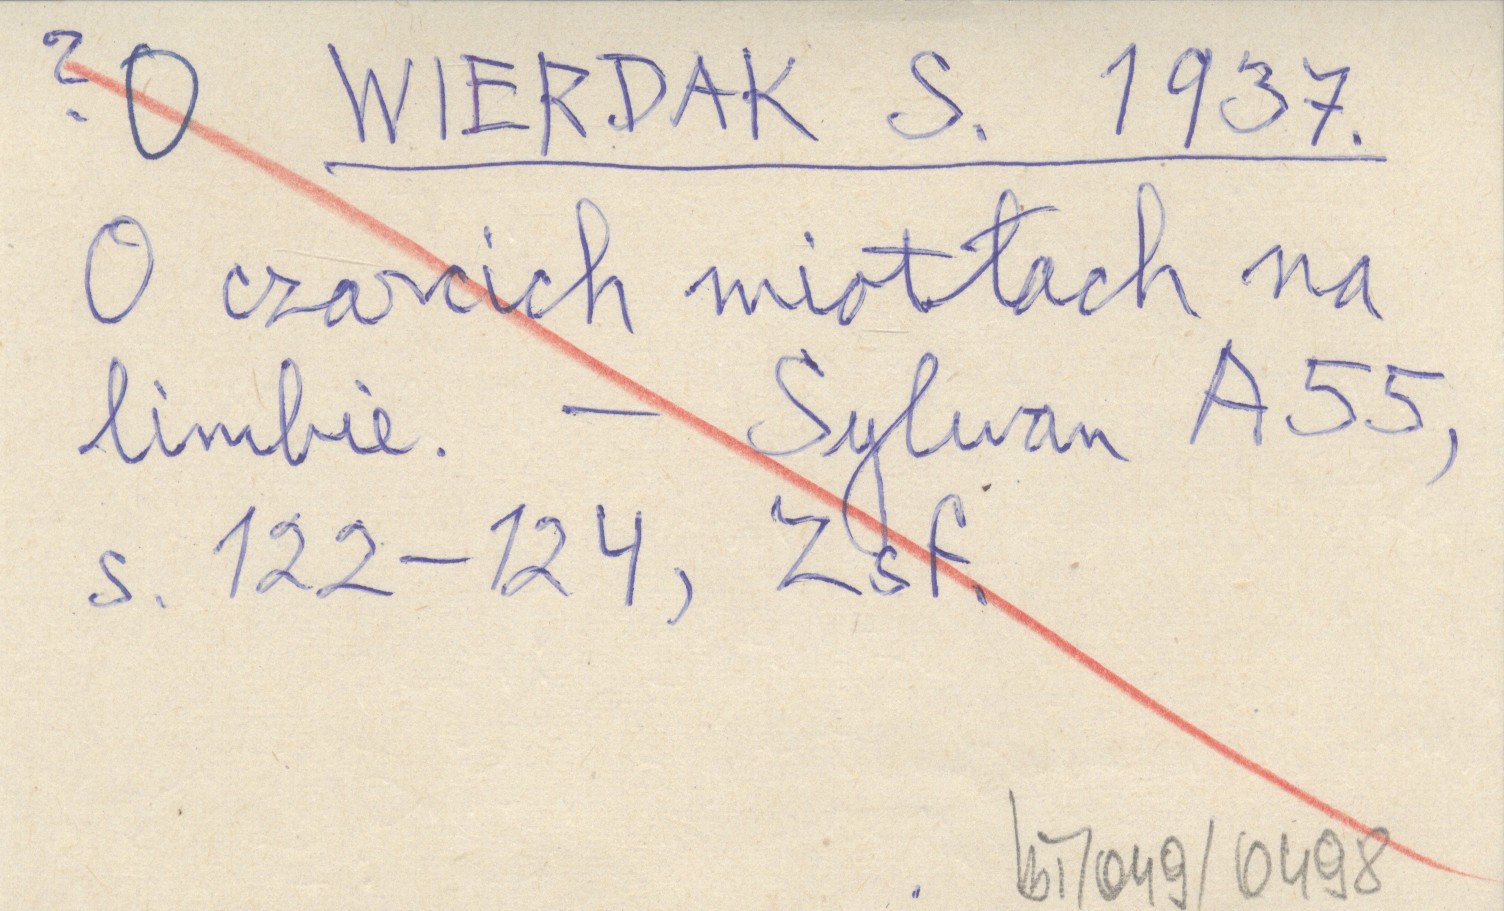 ? O WIERDAK S. 1937.
O czarcich miotłach na
limbie. — Sylwan A 55,
s. 122-124, Zsf.
/049/0498